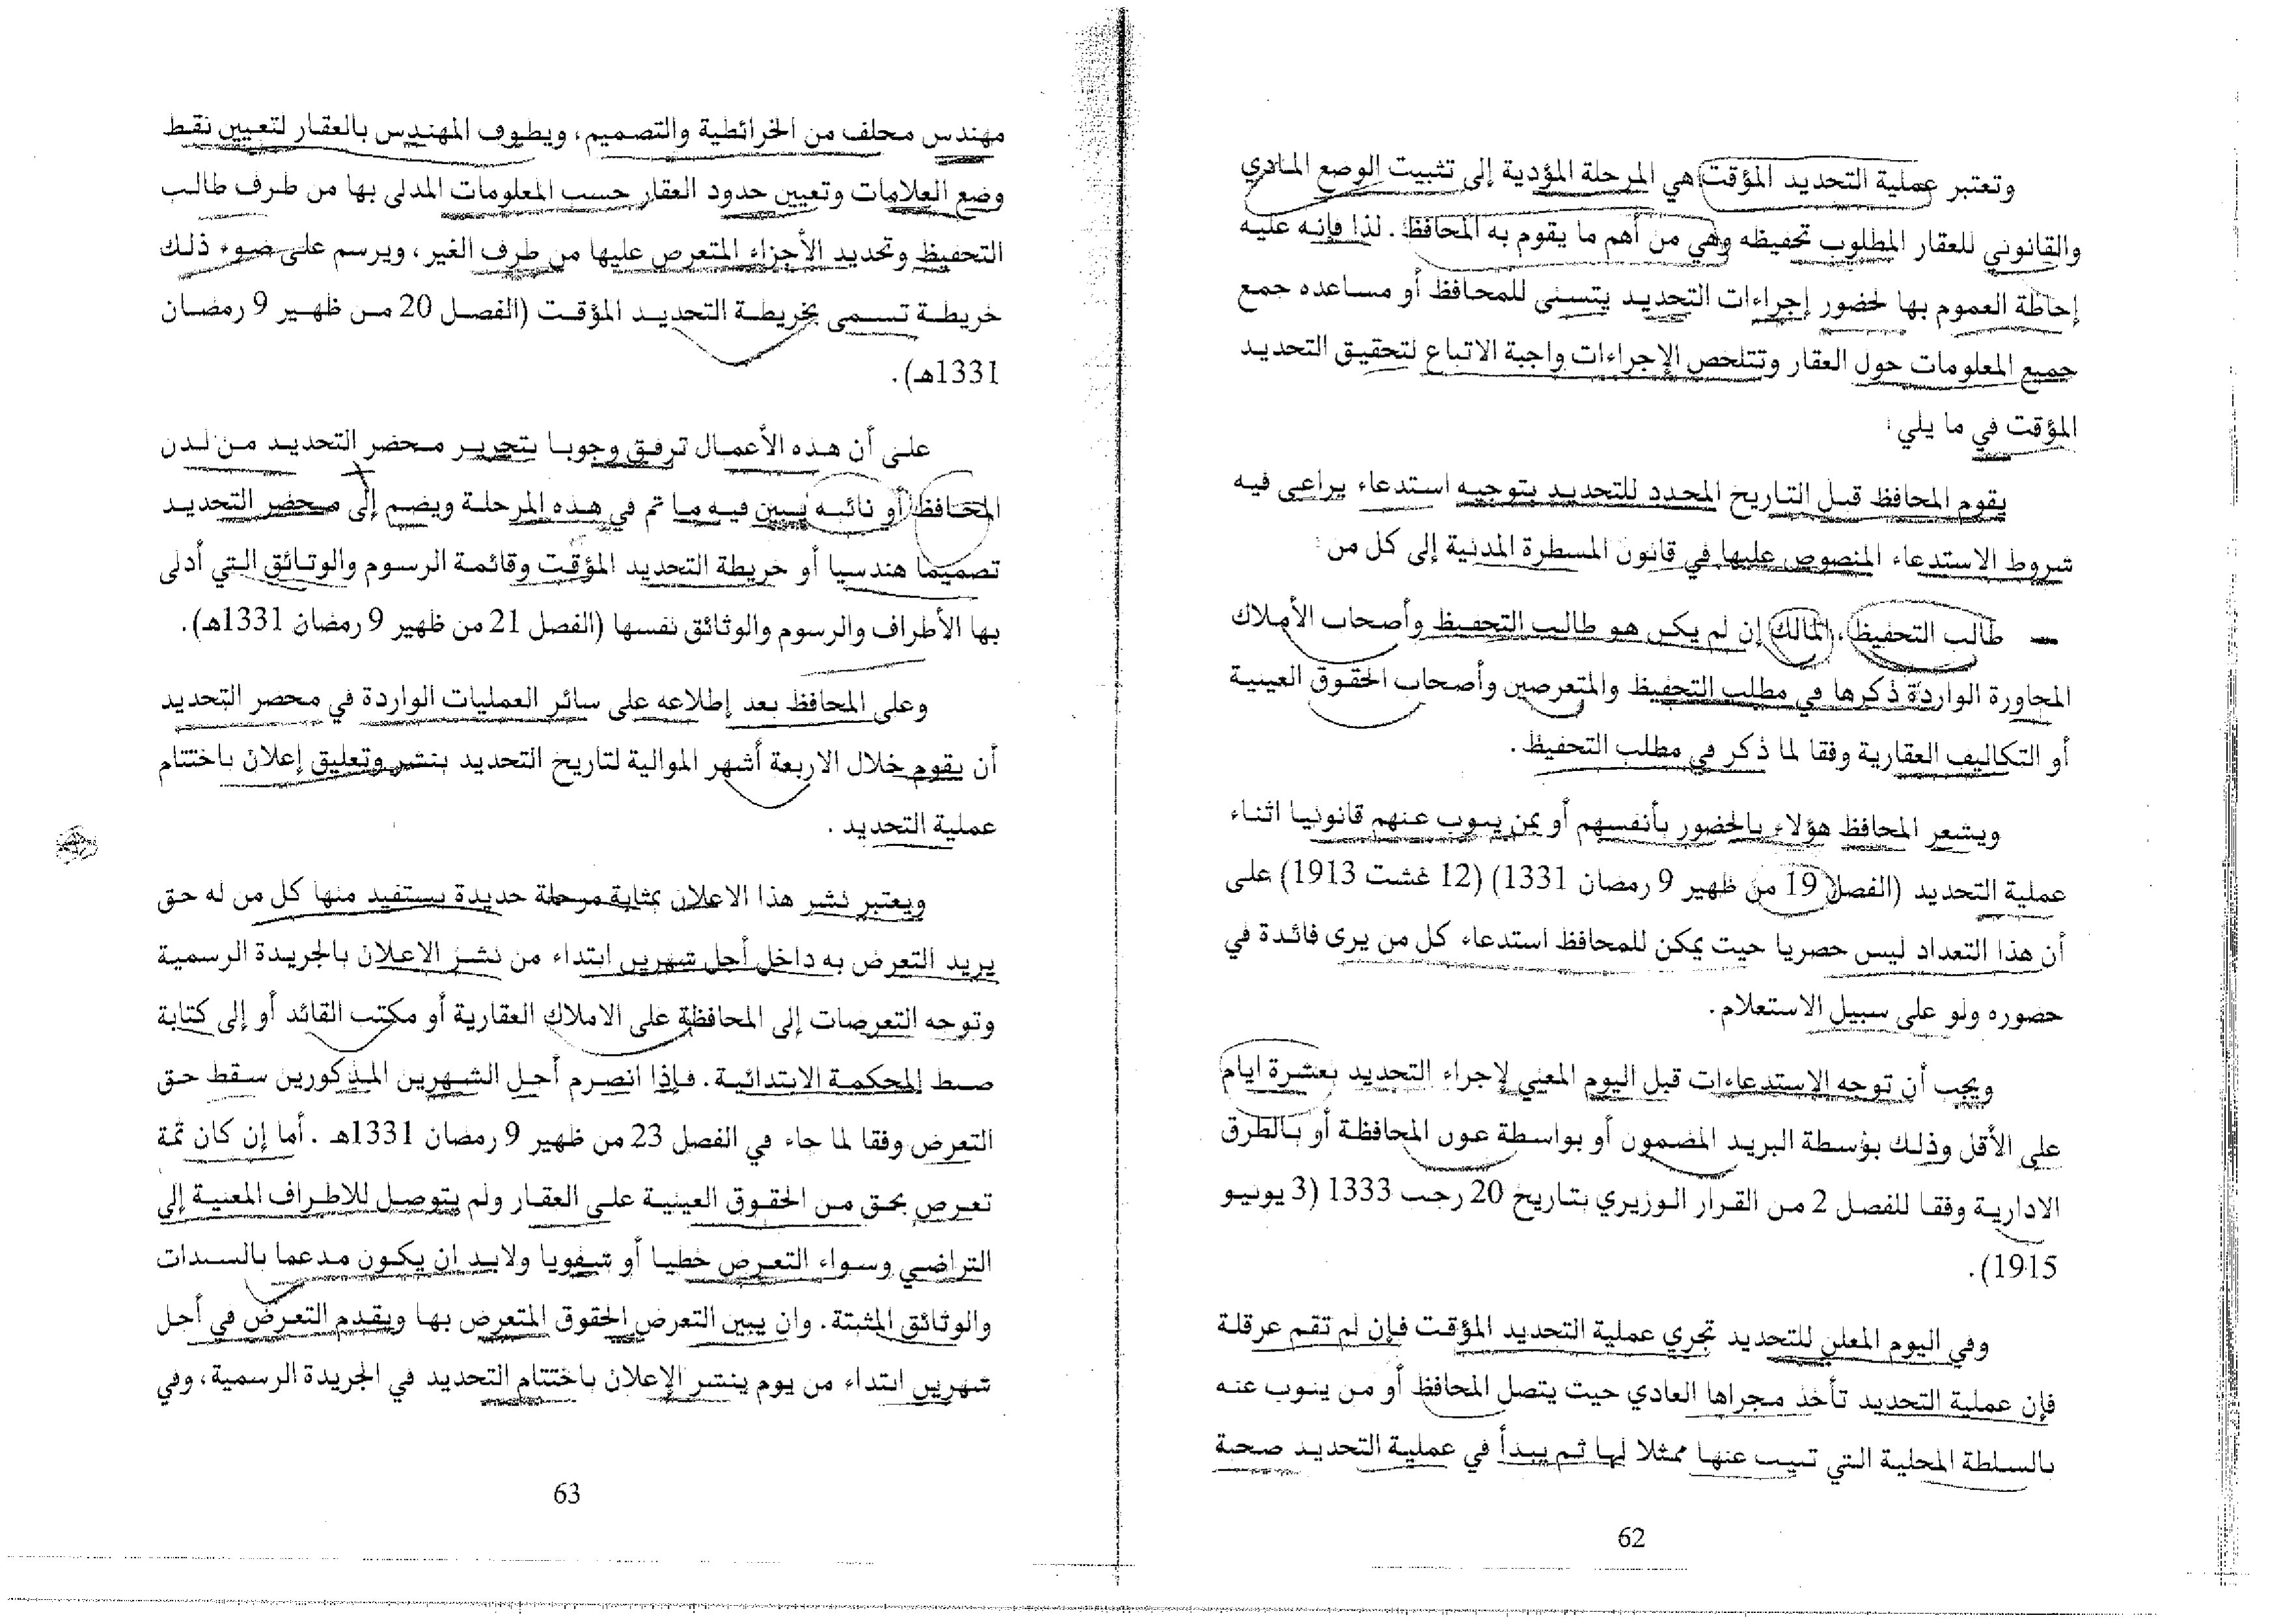 وتعتبر عملية التحديد المؤقت هي المرحلة المؤدية إلى تثبيت الوضع المادي
والقانوني للعقار المطلوب تحفيظه وهي من أهم ما يقوم به المحافظ. لذا فإنه عليه
إحاطة العموم بها لحضور إجراءات التحديد يتسنى للمحافظ أو مساعده جمع
جميع المعلومات حول العقار وتتلخص الإجراءات واجبة الاتباع لتحقيق التحديد
المؤقت في ما يلي:
يقوم المحافظ قبل التاريخ المحدد للتحديد بتوجيه استدعاء يراعى فيه
شروط الاستدعاء المنصوص عليها في قانون المسطرة المدنية إلى كل من:
– طالب التحفيظ، المالك إن لم يكن هو طالب التحفيظ وأصحاب الأملاك
المجاورة الواردة ذكرها في مطلب التحفيظ والمتعرضين وأصحاب الحقوق العينية
أو التكاليف العقارية وفقا لما ذكر في مطلب التحفيظ.
ويشعر المحافظ هؤلاء بالحضور بأنفسهم أو بمن ينوب عنهم قانونيا اثناء
عملية التحديد (الفصل 19 من ظهير 9 رمضان 1331) (12 غشت 1913) على
أن هذا التعداد ليس حصريا حيت يمكن للمحافظ استدعاء كل من يرى فائدة في
حضوره ولو على سبيل الاستعلام.
ويجب أن توجه الاستدعاءات قبل اليوم المعني لإجراء التحديد بعشرة ايام
على الأقل وذلك بؤسطة البريد المضمون أو بواسطة عون المحافظة أو بالطرق
الادارية وفقا للفصل 2 من القرار الوزيري بتاريخ 20 رجب 1333 (3 يونيو
1915).
وفي اليوم المعلن للتحديد تجري عملية التحديد المؤقت فإن لم تقم عرقلة
فإن عملية التحديد تأخذ مجراها العادي حيت يتصل المحافظ أو من ينوب عنه
بالسلطة المحلية التي تنيب عنها ممثلا لها ثم يبدأ في عملية التحديد صحبة
62
مهندس محلف من الخرائطية والتصميم، ويطوف المهندس بالعقار لتعيين نقط
وضع العلامات وتعيين حدود العقار حسب المعلومات المدلى بها من طرف طالب
التحفيظ وتحديد الأجزاء المتعرض عليها من طرف الغير، ويرسم على ضوء ذلك
خريطة تسمى بخريطة التحديد المؤقت (الفصل 20 من ظهير 9 رمضان
1331هـ).
على أن هذه الأعمال ترفق وجوبا بتحرير محضر التحديد من لدن
المحافظ أو نائبه يبين فيه ما تم في هذه المرحلة ويضم إلى محضر التحديد
تصميما هندسيا أو خريطة التحديد المؤقت وقائمة الرسوم والوتائق التي أدلى
بها الأطراف والرسوم والوثائق نفسها (الفصل 21 من ظهير 9 رمضان 1331هـ).
وعلى المحافظ بعد إطلاعه على سائر العمليات الواردة في محضر التحديد
أن يقوم خلال الاربعة أشهر الموالية لتاريخ التحديد بنشر وتعليق إعلان باختتام
عملية التحديد.
ويعتبر نشر هذا الاعلان بمثابة مرحلة جديدة يستفيد منها كل من له حق
يريد التعرض به داخل أجل شهرين ابتداء من نشر الاعلان بالجريدة الرسمية
وتوجه التعرضات إلى المحافظة على الاملاك العقارية أو مكتب القائد أو إلى كتابة
ضبط المحكمة الابتدائية. فإذا انصرم أجل الشهرين المذكورين سقط حق
التعرض وفقا لما جاء في الفصل 23 من ظهير 9 رمضان 1331هـ. أما إن كان ثمة
تعرض بحق من الحقوق العينية على العقار ولم يتوصل للاطراف المعنية إلى
التراضي وسواء التعرض خطيا أو شفويا ولابد ان يكون مدعما بالسندات
والوثائق المثبتة. وان يبين التعرض الحقوق المتعرض بها ويقدم التعرض في أجل
شهرين ابتداء من يوم ينشر الإعلان باختتام التحديد في الجريدة الرسمية، وفي
63